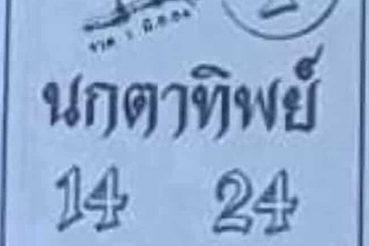 นกตาทิพย์
14 24